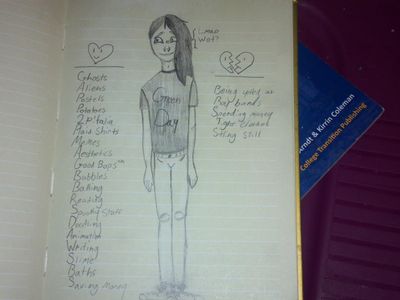 Lmao
Wot?
Ghosts
Aliens
Pastels
Potatoes
2P!talia
shirts
Memes
Aesthetics
Good Bops™
Bubbles
Baking
Reading
Spooky stuff
Doodling
Animation
Writing
Slime
Baths
Saving Money
Green
Day
Being yelled at
bands
Spending money
Sitting still
Arndt & Kirrin Coleman
College Transition Publishing